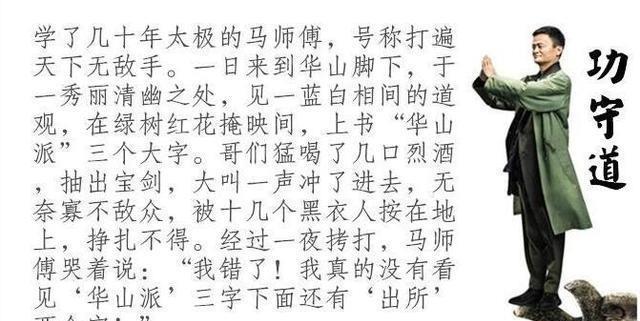 学了几十年太极的马师傅，号称打遍
天下无敌手。一日来到华山脚下，于
一秀丽清幽之处，见一蓝白相间的道
观，在绿树红花掩映间，上书“华山
派”三个大字。哥们猛喝了几口烈酒
，抽出宝剑，大叫一声冲了进去，无
奈寡不敌众，被十几个黑衣人按在地
上，挣扎不得。经过一夜拷打，马师
傅哭着说：“我错了！我真的没有看
见‘华山派’三字下面还有‘出所’
功守道